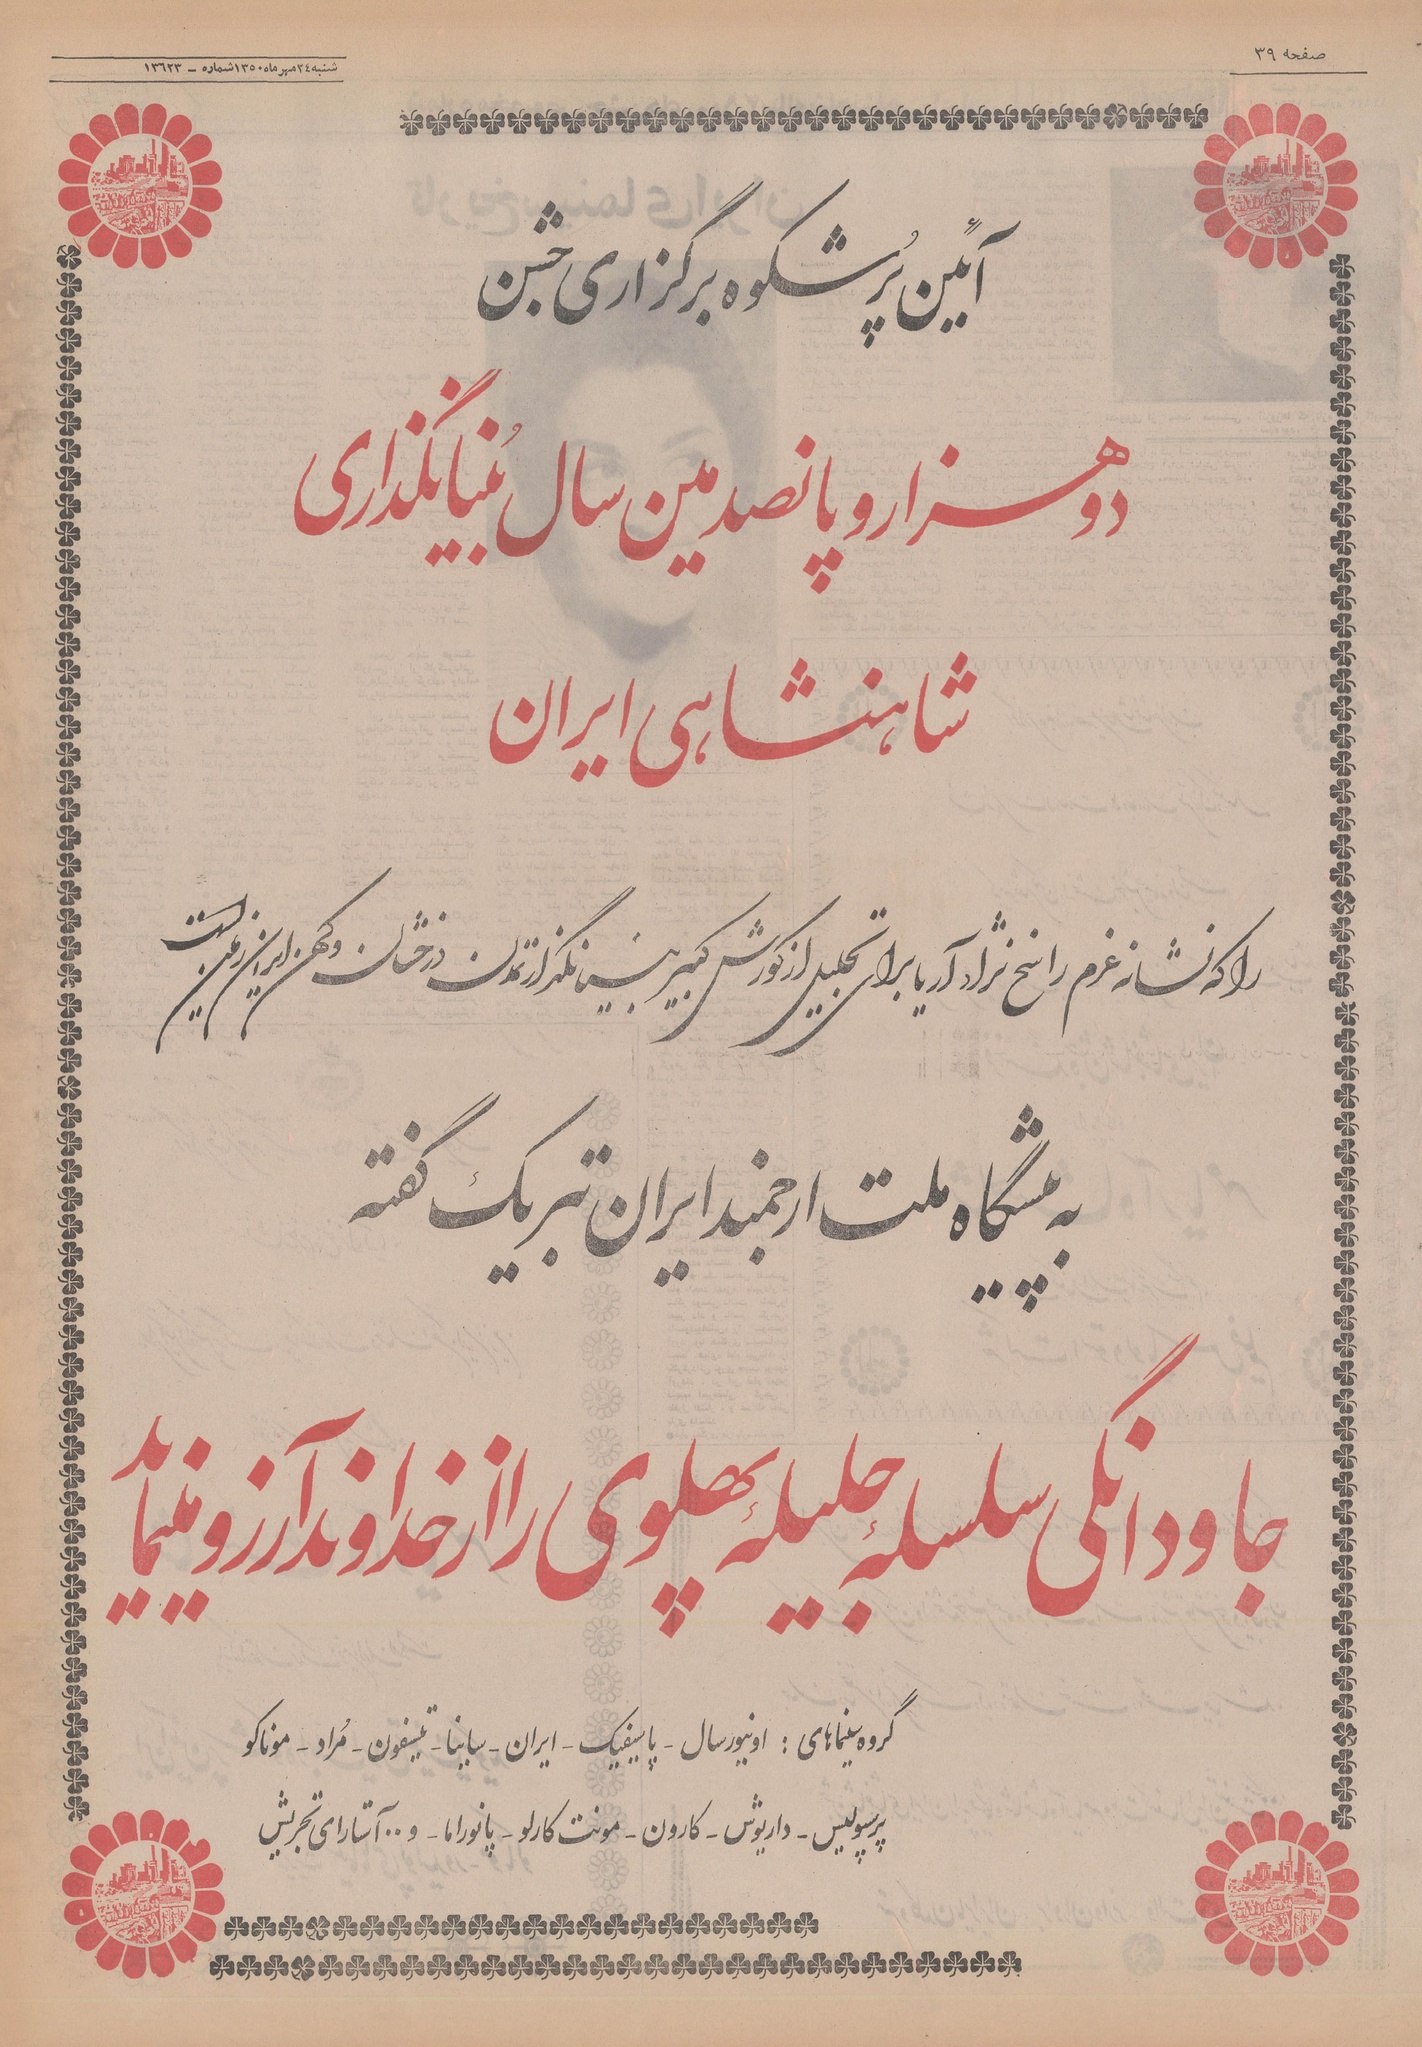 صفحه ۳۹
شنبه ۲۴ مهر ماه ۱۳۵۰ شماره – ۱۳۶۲۳
آئین پُرشکوه برگزاری جشن
دو هزار و پانصدمین سال بُنیانگذاری
شاهنشاهی ایران
را که نشانه عزم راسخ نژاد آریا برای تجلیل از کورش کبیر بنیانگذار تمدن درخشان و کهن ایران زمین است
به پیشگاه ملت ارجمند ایران تبریک گفته
جاودانگی سلسلهٔ جلیلهٔ پهلوی را از خداوند آرزو مینماید
گروه سینماهای : اونیورسال – پاسیفیک – ایران – ساینا – تیسفون – مُراد – موناکو
پرسپولیس – داریوش – کارون – مونت کارلو – پانوراما – و .. آستارای تجریش